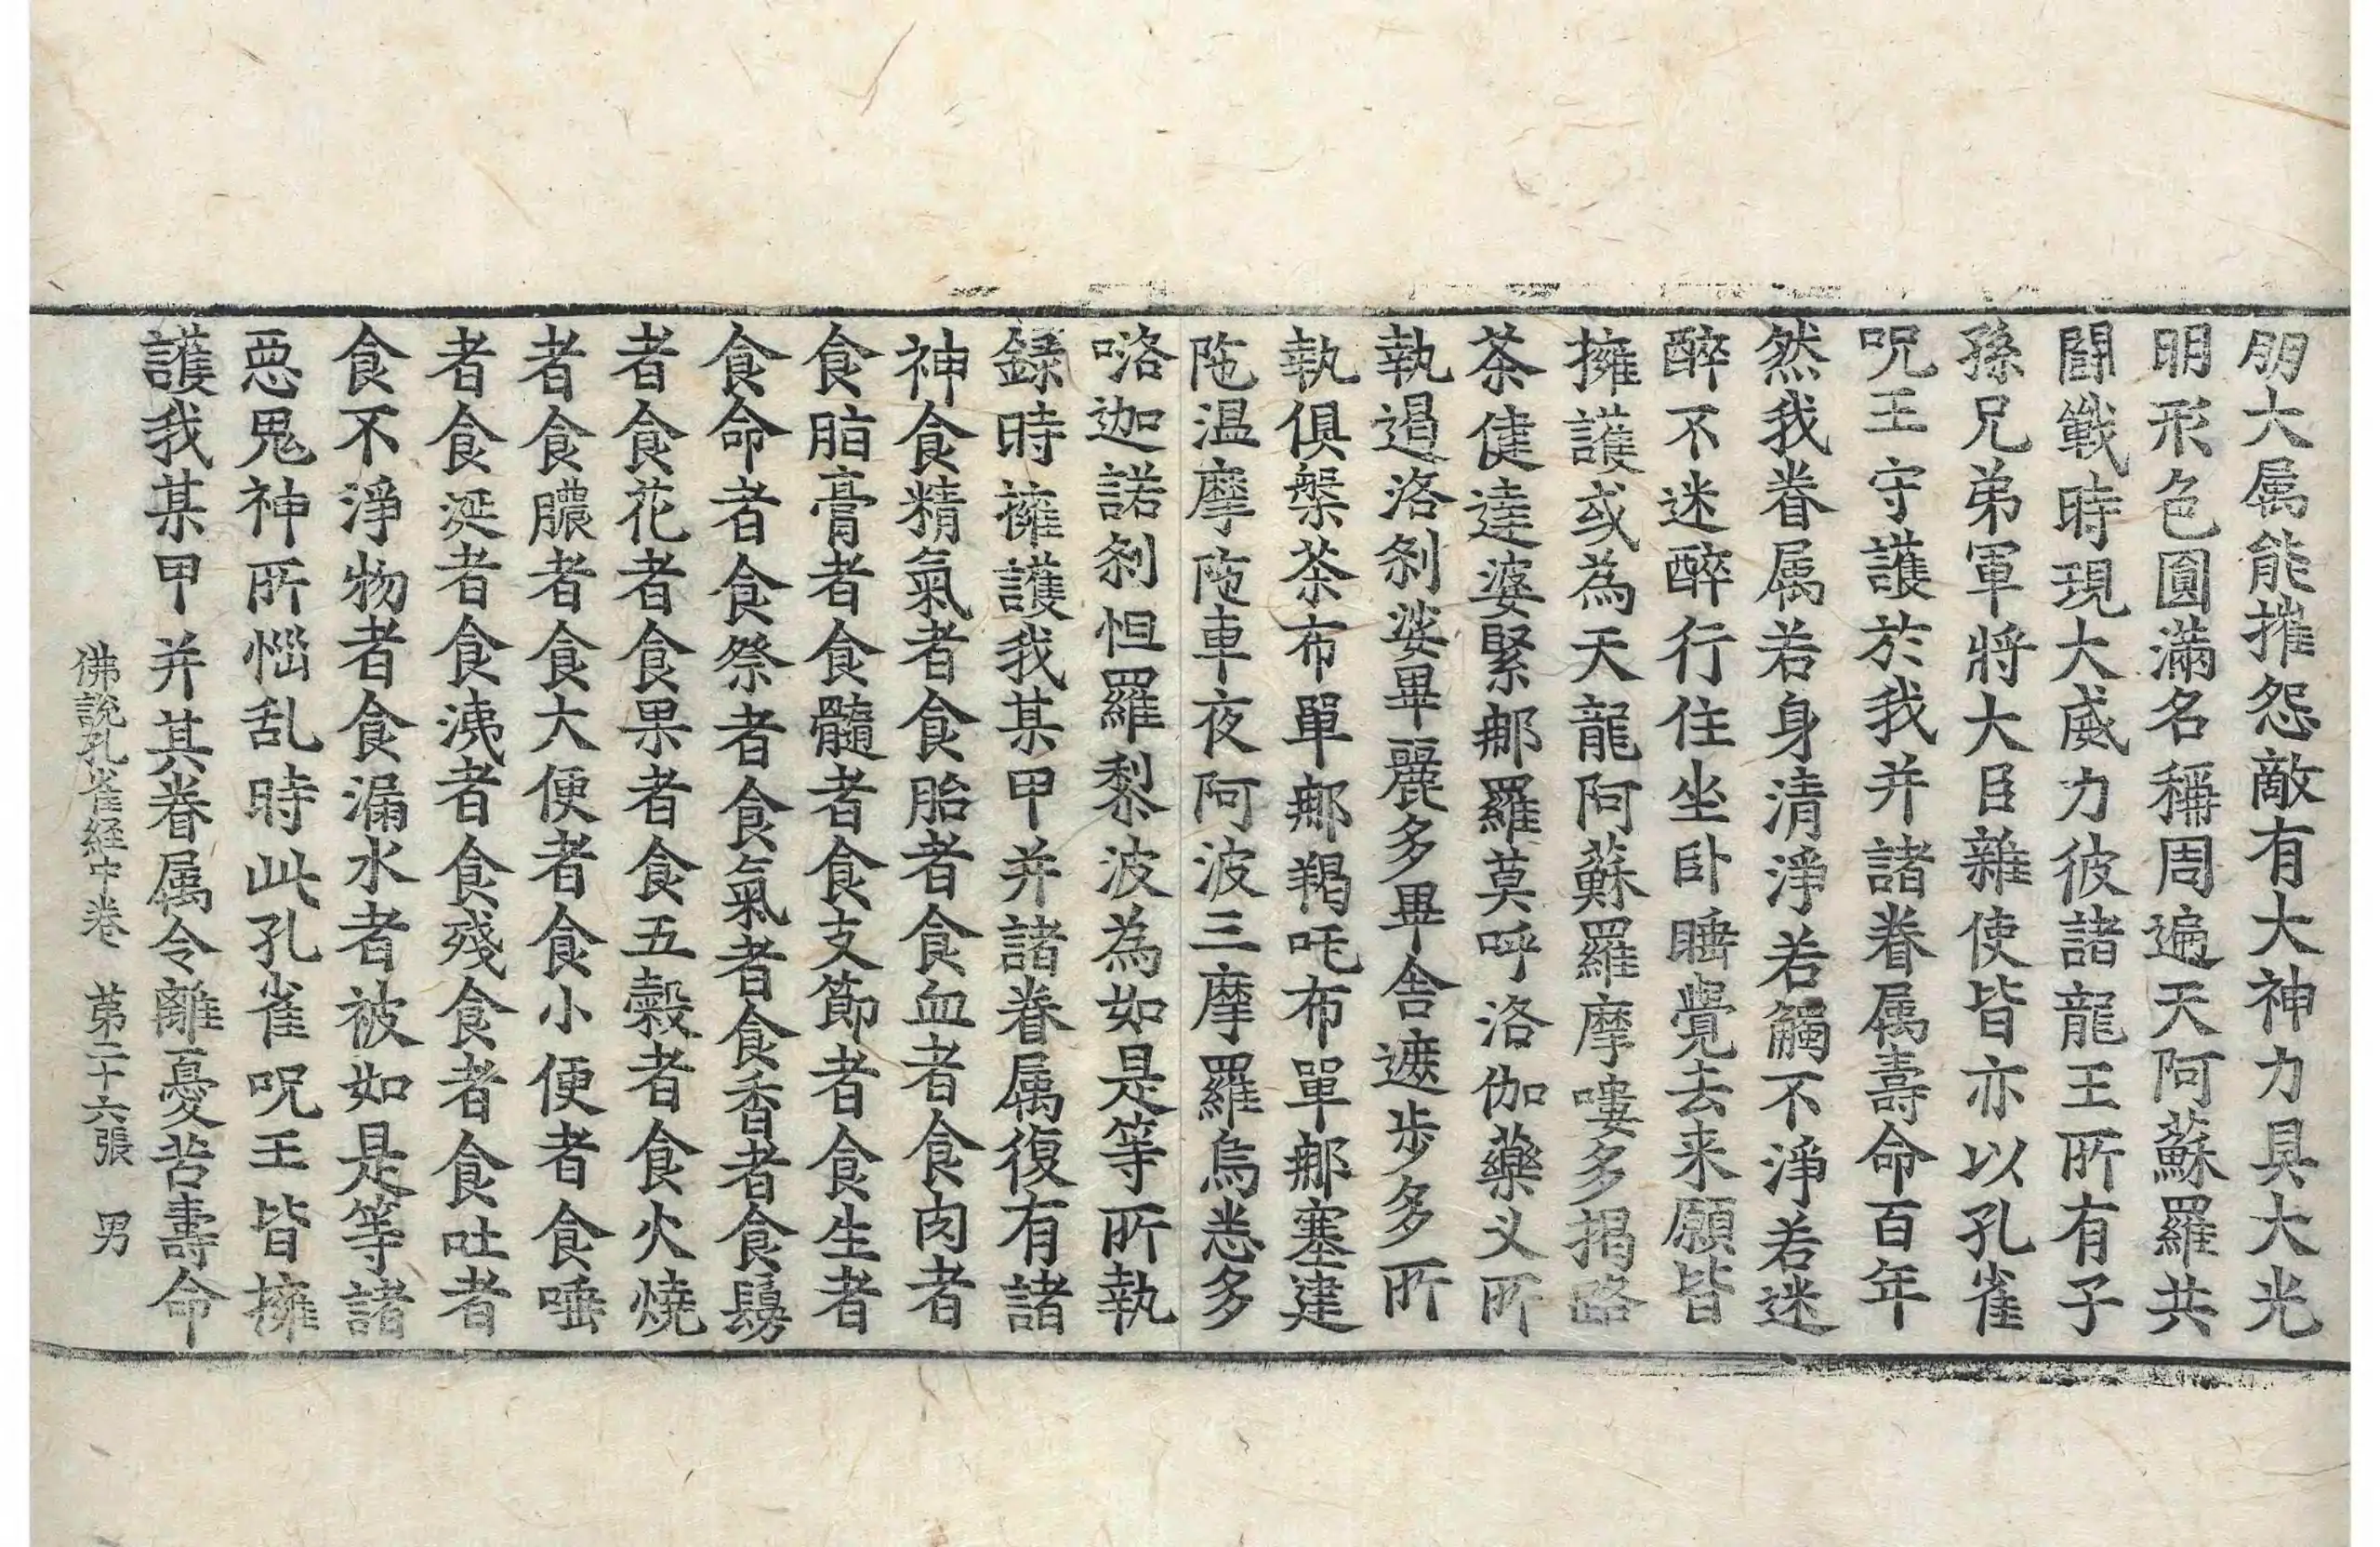 明大属能摧怨敵有大神力具大光
明形色圓滿名稱周遍天阿蘇羅共
鬪戰時現大威力彼諸龍王所有子
孫兄弟軍將大臣雜使皆亦以孔雀
呪王守護於我并諸眷属壽命百年
然我眷属若身清淨若觸不淨若迷
醉不迷醉行住坐卧睡覺去来願皆
擁護或為天龍阿蘇羅摩嘍多揭路
茶健達婆緊那羅莫呼洛伽藥叉所
執遏洛剎娑畢麗多畢舍遮步多所
執俱槃茶布單那羯吒布單那塞建
陁温摩陁車夜阿波三摩羅烏悉多
咯迦諾剎怛羅黎波為如是等所執
録時擁護我某甲并諸眷属復有諸
神食精氣者食胎者食血者食肉者
食脂膏者食髓者食支節者食生者
食命者食祭者食氣者食香者食鬘
者食花者食果者食五穀者食火燒
者食膿者食大便者食小便者食唾
者食涎者食洟者食殘食者食吐者
食不淨物者食漏水者被如是等諸
惡鬼神所惱乱時此孔雀呪王皆擁
護我某甲并其眷属令離憂苦壽命
佛說孔雀経中卷 第二十六張 男